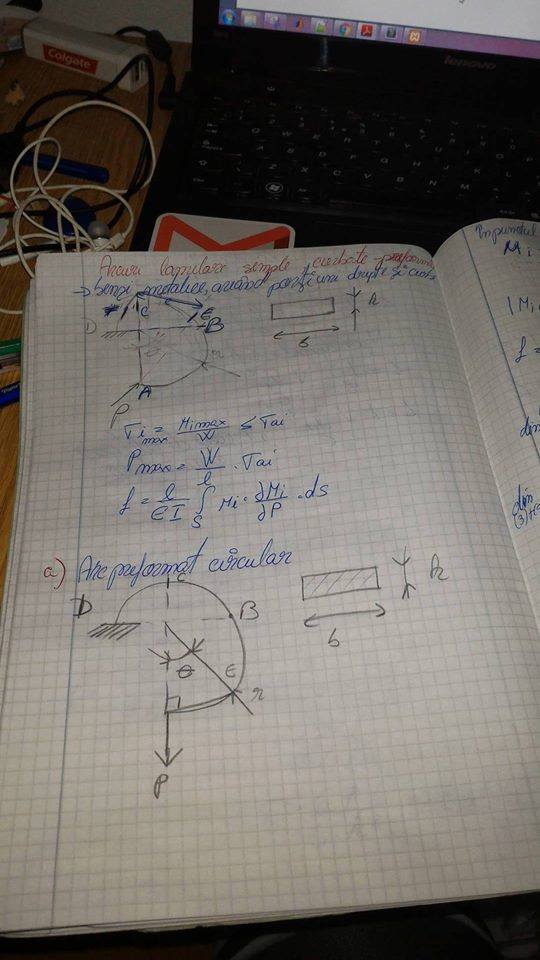 Colgate
lenovo
Arcuri lamelare simple curbate preformate
→ benzi metalice, având porțiuni drepte și curbe
C
E
D
B
h
b
r
A
P
σi max = Mimax/W ≤ σai
Pmax = W/l · σai
f = l/EI ∫S Mi · ∂Mi/∂P · ds
a) Arc preformat circular
C
D
B
h
b
θ
E
r
P
În punctul
Mi
|Mi
f =
din
din